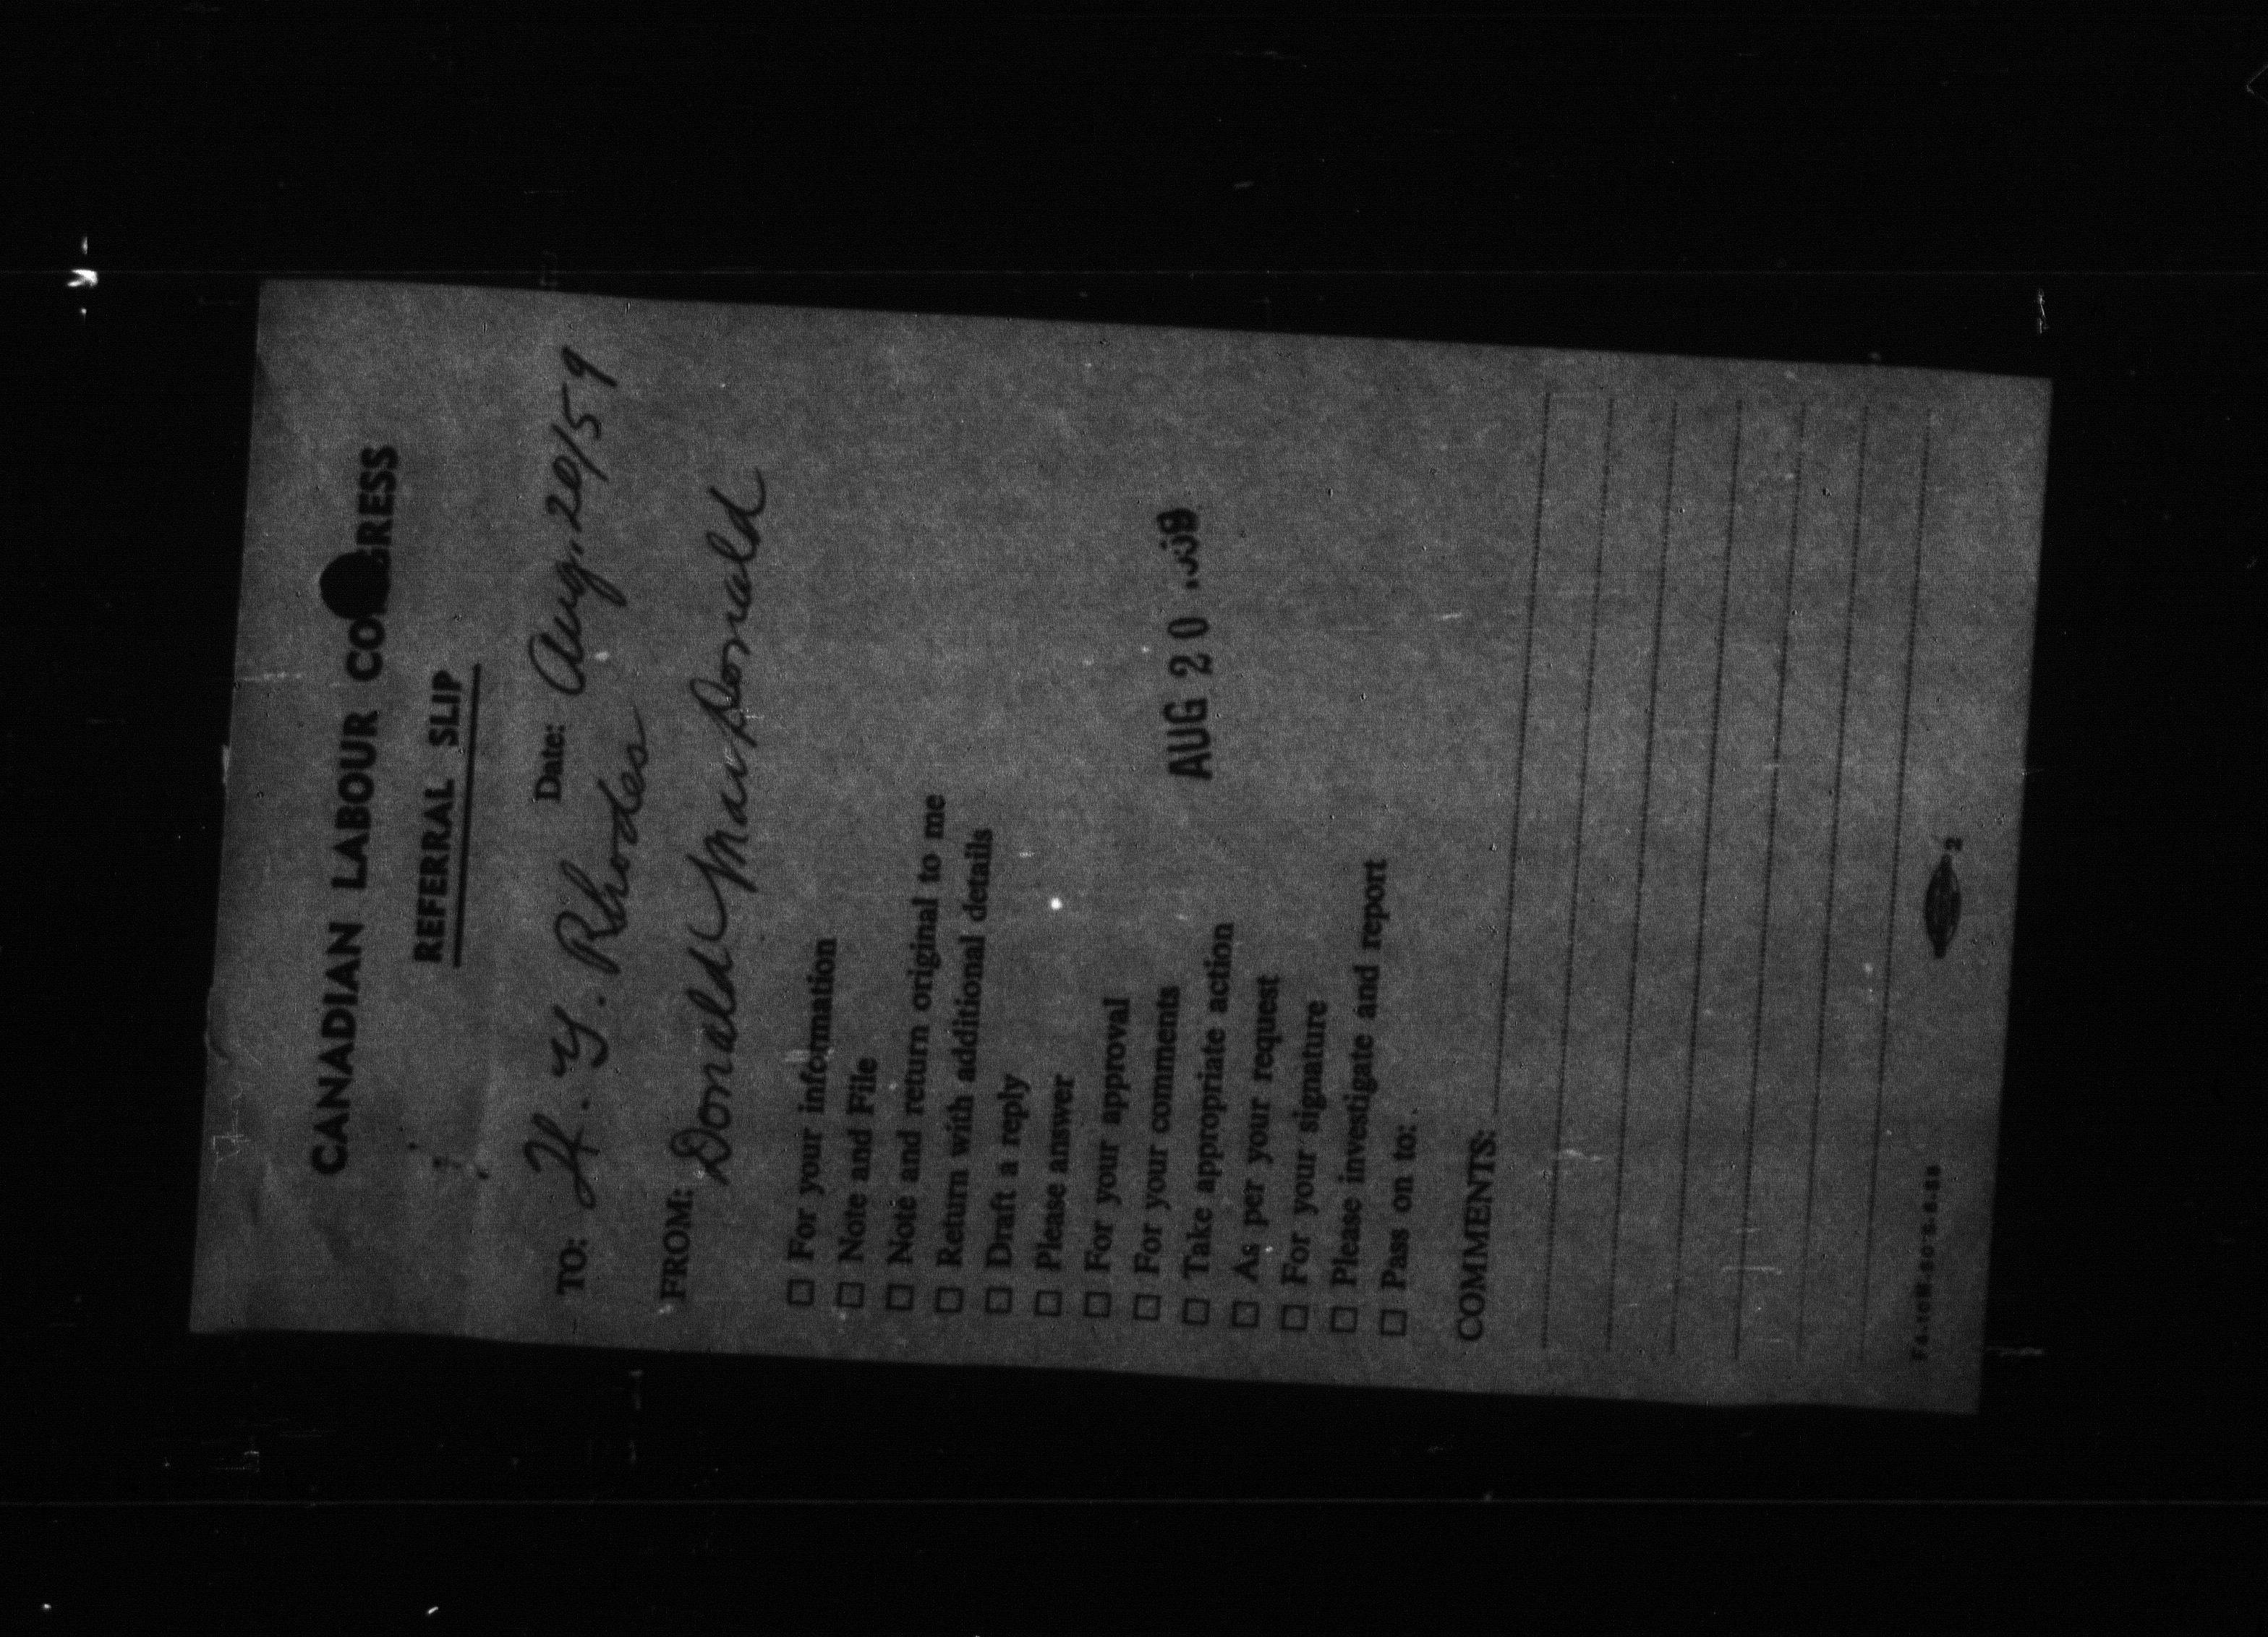 CANADIAN LABOUR CONGRESS
REFERRAL SLIP
Date: Aug. 20/59
TO: H. Y. Rhodes
FROM: Donald MacDonald
☐ For your information
☐ Note and File
☐ Note and return original to me
☐ Return with additional details
☐ Draft a reply
☐ Please answer
☐ For your approval
☐ For your comments
☐ Take appropriate action
☐ As per your request
☐ For your signature
☐ Please investigate and report
☐ Pass on to:
AUG 20
COMMENTS:
2